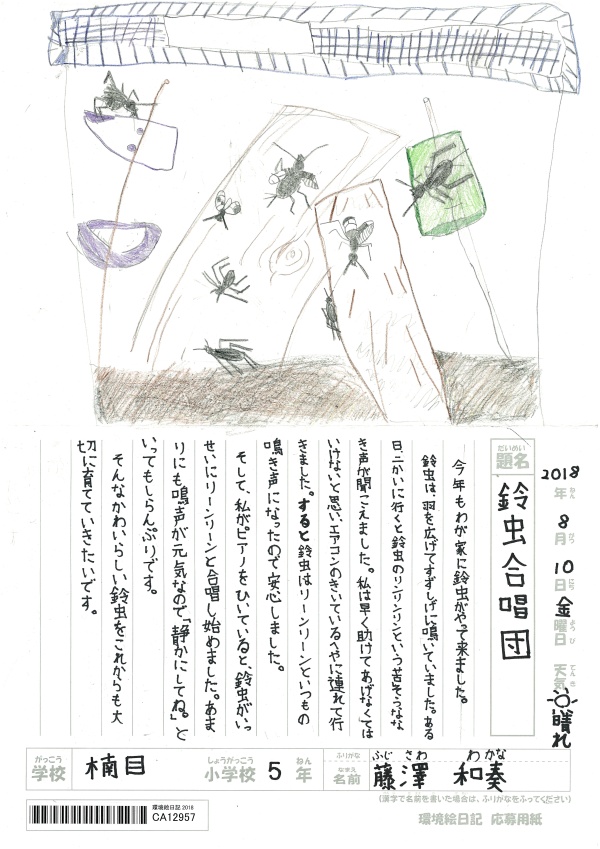 2018年ねん8月がつ10日にち金曜日ようび 天気てんき 晴れ
だいめい
題名
鈴虫合唱団
今年もわが家に鈴虫がやって来ました。
鈴虫は、羽を広げてすずしげに鳴いていました。ある
日、二かいに行くと鈴虫のリンリンリンという苦そうな、な
き声が聞こえました。私は早く助けてあげなくては
いけないと思い、エアコンのきいているへやに連れて行
きました。すると鈴虫はリーンリーンといつもの
鳴き声になったので安心しました。
そして、私がピアノをひいていると、鈴虫がいっ
せいにリーンリーンと合唱し始めました。あま
りにも鳴声が元気なので「静かにしてね。」と
いってもしらんぷりです。
そんなかわいらしい鈴虫をこれからも大
切に育てていきたいです。
がっこう しょうがっこう ねん ふりがな ふじ さわ わ かな
学校 楠目 小学校 5 年 なまえ 名前 藤澤 和奏
(漢字で名前を書いた場合は、ふりがなをふってください)
環境絵日記 2018
CA12957
環境絵日記 応募用紙